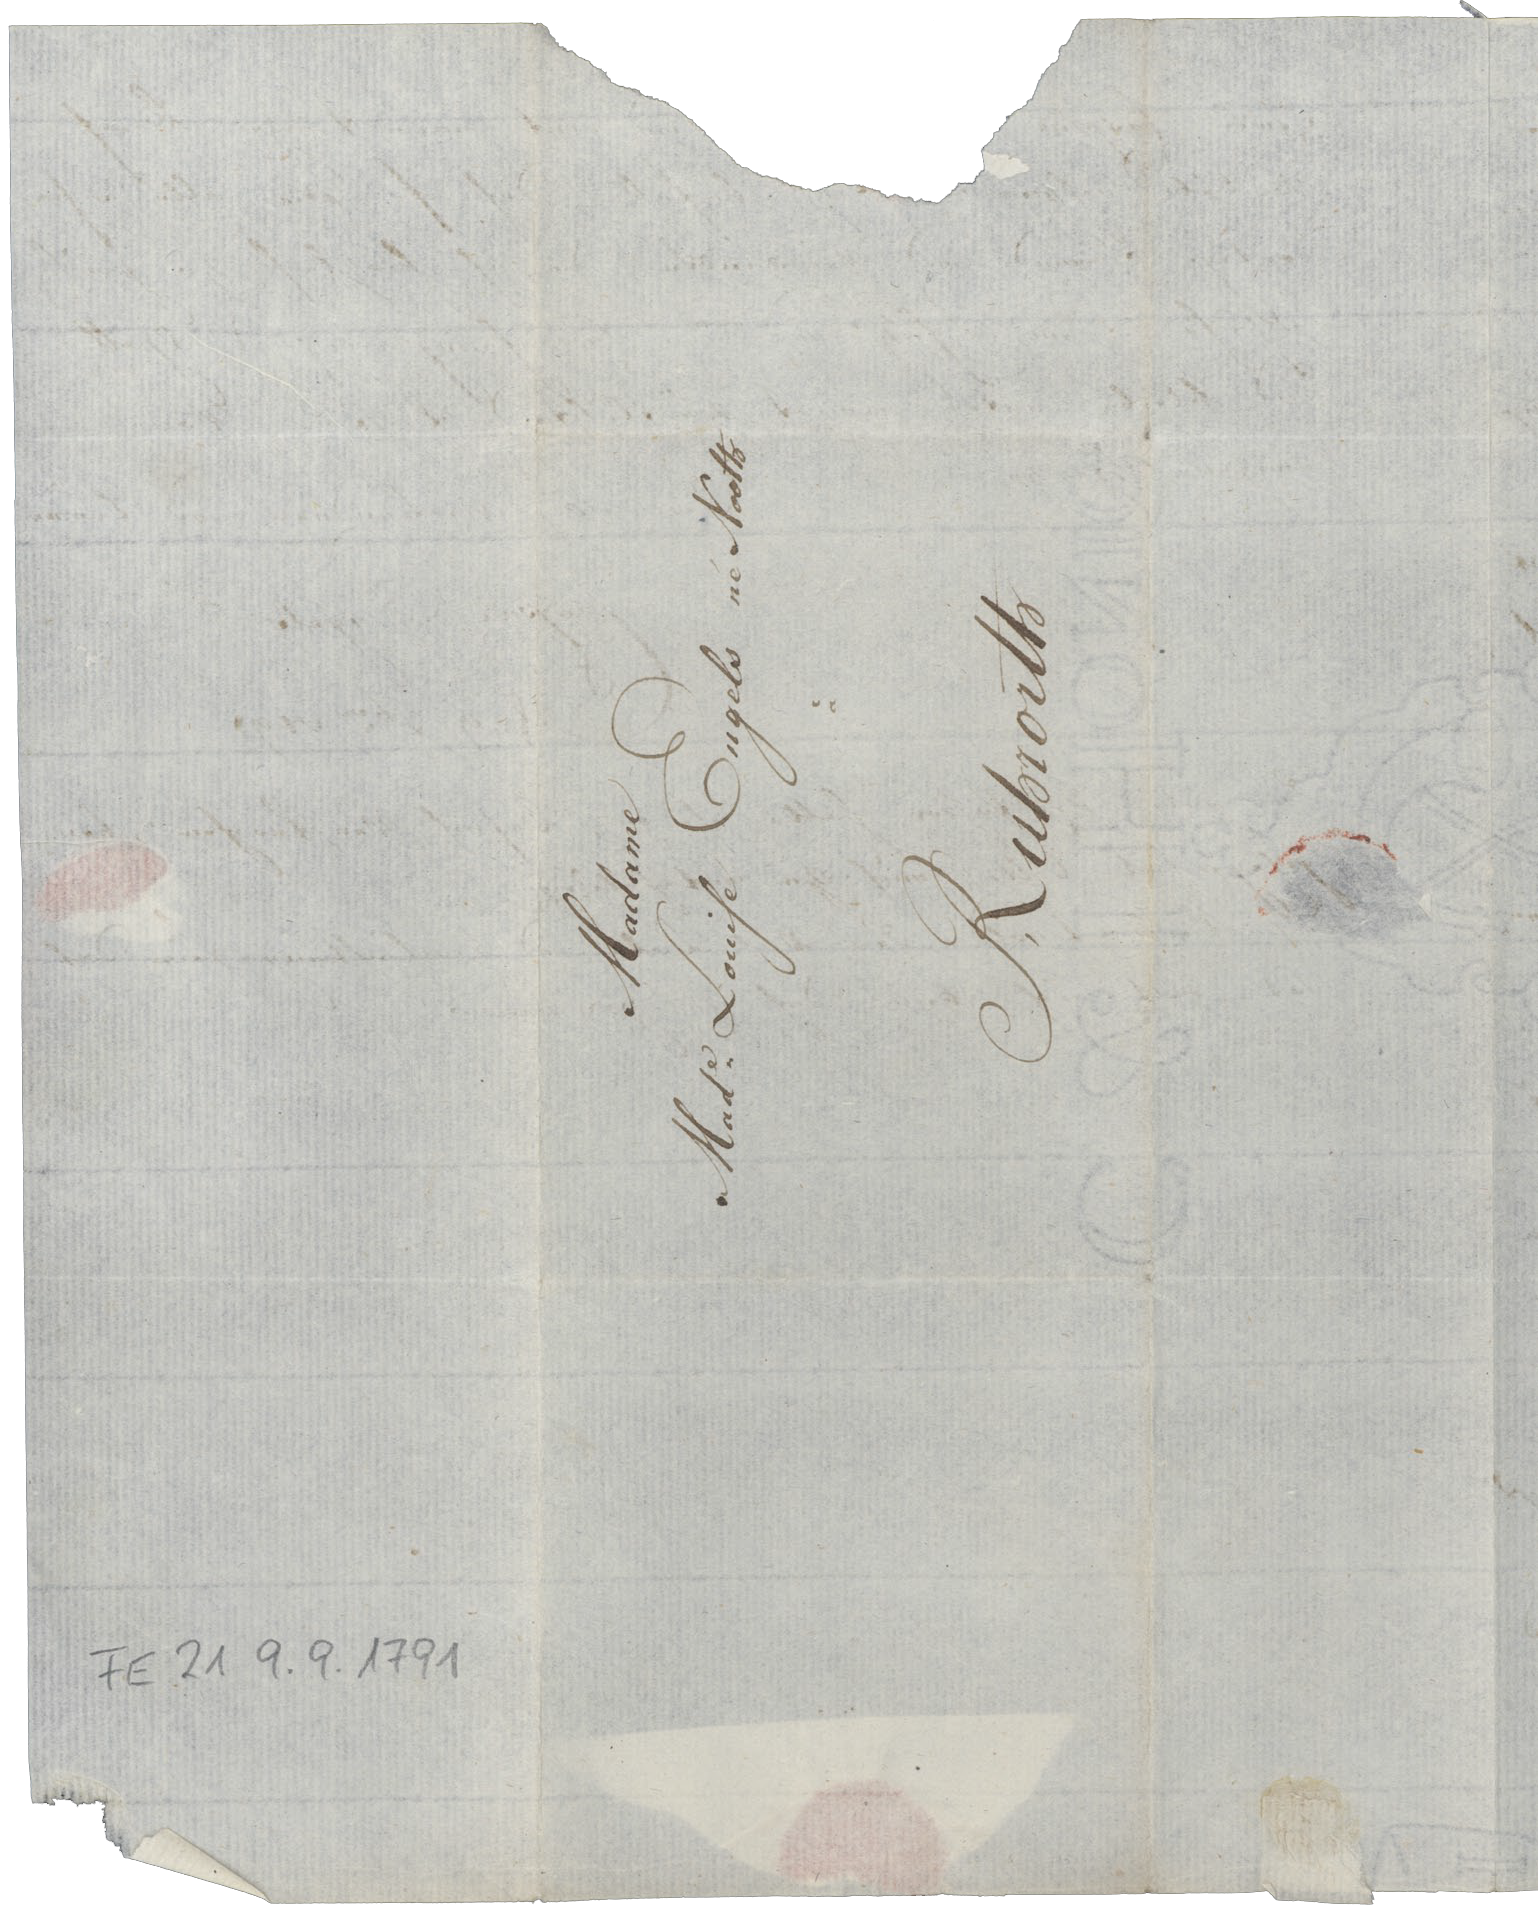 Madame
Made. Louise Engels né Noott
à
Ruhrort
FE 21 9.9.1791